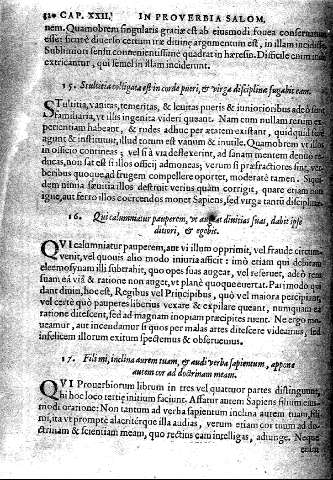 820 CAP. XXII. IN PROVERBIA SALOM.
nem. Quamobrem singularis gratiæ est ab eiusmodi fouea conseruatum
esse: sicuti diuerso certum iræ diuinæ argumentum est, in illam incidisse.
Sublimiori sensu conuenientissime quadrat in hæresin. Difficile enim inde
extricantur, qui semel in illam inciderint.
15. Stultitia colligata est in corde pueri, & virga disciplinæ fugabit eam.
STultitia, vanitas, temeritas, & leuitas pueris & iunioribus adeò sunt
familiaria, vt illis ingenita videri queant. Nam cum nullam rerum ex-
perientiam habeant, & rudes adhuc per ætatem existant, quidquid
agunt & instituunt, illud totum est vanum & inutile. Quamobrem vt illos
in officio contineas, vel si à via deflexerint, ad sanam mentem denuò re-
ducas, non sat est si illos officij admoneas; verum si præfractiores sint, ver-
beribus quoque ad frugem compellere oportet, moderatè tamen. Siqui-
dem nimia sæuitia illos destruit verius quàm corrigit, quare etiam non
igne, aut ferro illos coercendos monet Sapiens, sed virga tantùm disciplinæ.
16. Qui calumniatur pauperem, vt augeat diuitias suas, dabit ipse
ditiori, & egebit.
QVI calumniatur pauperem, aut vi illum opprimit, vel fraude circum-
uenit, vel quouis alio modo iniuria afficit: imò etiam qui debitam
eleemosynam illi subtrahit, quo opes suas augeat, vel reseruet, adeò rem
suam ea via & ratione non auget, vt planè quoque euertat. Pari modo qui
dant diuiti, hoc est, Regibus vel Principibus, quò vel maiora percipiant,
vel certè quò pauperes liberius vexare & expilare queant, nunquam ea
ratione ditescent, sed ad magnam inopiam præcipites ruent. Ne ergo mo-
ueamur, aut incendamur si quos per malas artes ditescere videamus, sed
infelicem illorum exitum spectemus & obseruemus.
17. Fili mi, inclina aurem tuam, & audi verba sapientum, appone
autem cor ad doctrinam meam.
QVI Prouerbiorum librum in tres vel quatuor partes distinguunt,
hi hoc loco tertiæ initium faciunt. Affatur autem Sapiens filium eius-
modi oratione: Non tantum ad verba sapientum inclina aurem tuam, fili
mi, ita vt promptè alacritérque illa audias, verum etiam cor tuum ad do-
ctrinam & scientiam meam, quo rectius eam intelligas, adiunge. Neque
enim